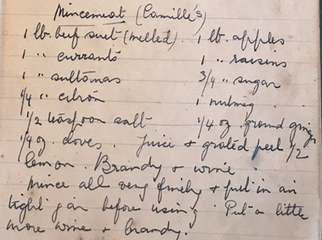 Mincemeat (Camille's)
1 lb. beef suet (melled). 1 lb. apples
1 " currants 1 " raisins
1 " sultanas 3/4 " sugar
1/4 " citron 1 nutmeg.
1/2 teaspoon salt 1/4 oz. ground ginger
1/4 oz. cloves. Juice & grated peel 1/2
lemon Brandy & wine.
Mince all very finely & put in air
tight jar before using. Put a little
more wine & brandy.